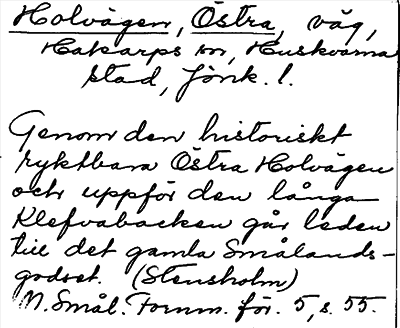 Holvägen, Östra, väg,
Hakarps sn, Huskvarna
stad, Jönk. l.
Genom den historiskt
ryktbara Östra Holvägen
och uppför den långa
Klefvabacken går leden
till det gamla Smålands-
godset. (Stensholm)
N. Smål. Fornm. för. 5, s. 55.